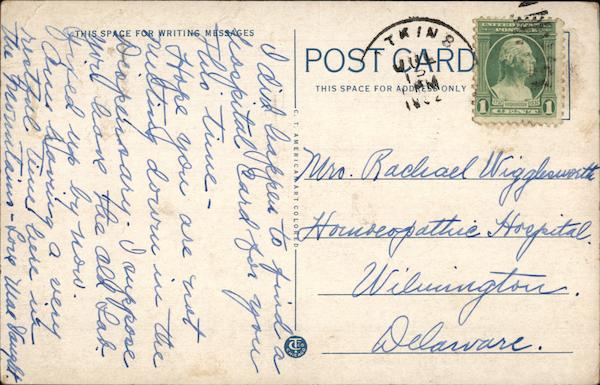 THIS SPACE FOR WRITING MESSAGES
I did happen to find a
hospital card for you
this time –
Hope you are not
rusting down in the
Dispensary. I suppose
you have the old Lab.
fixed up by now.
Am having a very
restful time here in
the mountains – Love
C. T. AMERICAN ART COLORED
POST CARD
THIS SPACE FOR ADDRESS ONLY
TKINS
JUL
15
AM
1932
1 1
Mrs. Rachael Wigglesworth
Homoeopathic Hospital.
Wilmington.
Delaware.